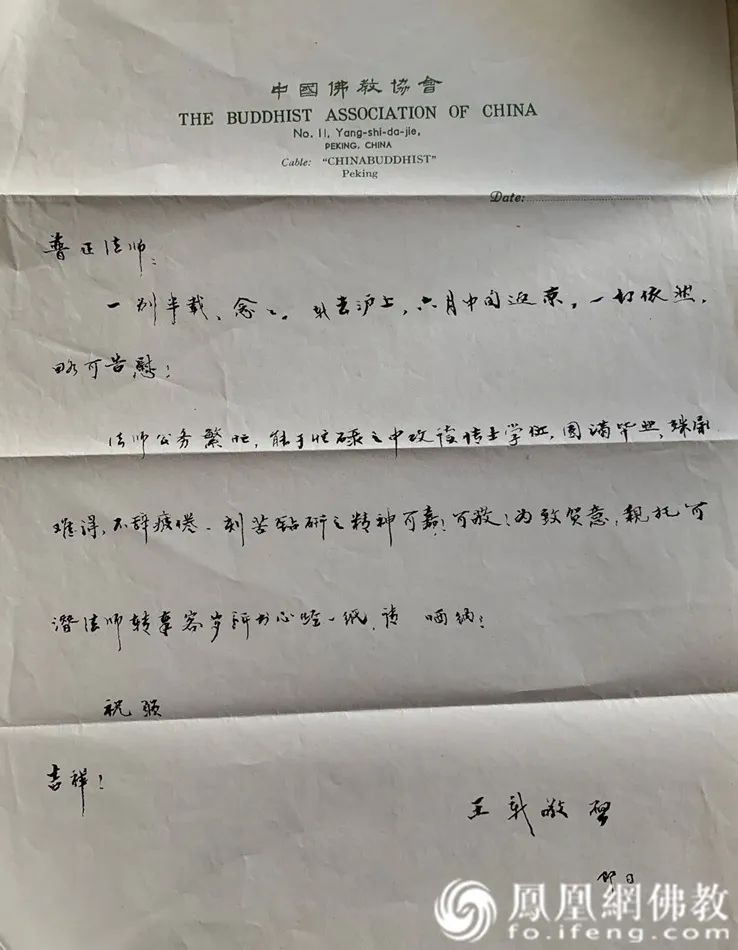 中國佛教協會
THE BUDDHIST ASSOCIATION OF CHINA
No. 11, Yang-shi-da-jie,
PEKING, CHINA
Cable: "CHINABUDDHIST"
Peking
Date:
普正法师：
一别半载、念之。我去沪上，六月中旬返京，一切依然，
略可告慰！
法师公务繁忙，能于忙碌之中攻读博士学位，圆满毕业，殊属
难得，不辞疲倦、刻苦钻研之精神可嘉！可敬！为致贺意，亲托可
潜法师转奉客岁所书心经一纸，请 哂纳！
祝颂
吉祥！
王 敬启
即日
鳳凰網佛教
fo.ifeng.com